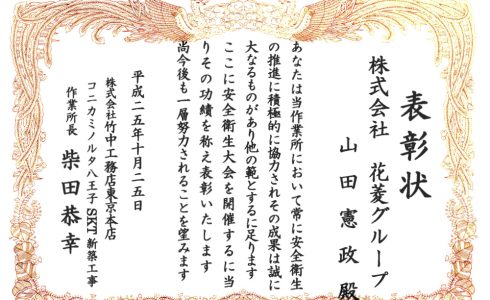 表彰状
株式会社 花菱グループ
山田憲政殿
あなたは当作業所において常に安全衛生
の推進に積極的に協力されその成果は誠に
大なるものがあり他の範とするに足ります
ここに安全衛生大会を開催するに当
りその功績を称え表彰いたします
尚今後も一層努力されることを望みます
平成二五年十月二五日
株式会社竹中工務店東京本店
コニカミノルタ八王子SKT新築工事
作業所長 柴田恭幸